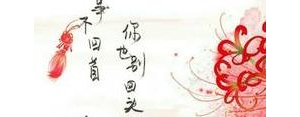 不回首
你也别回头